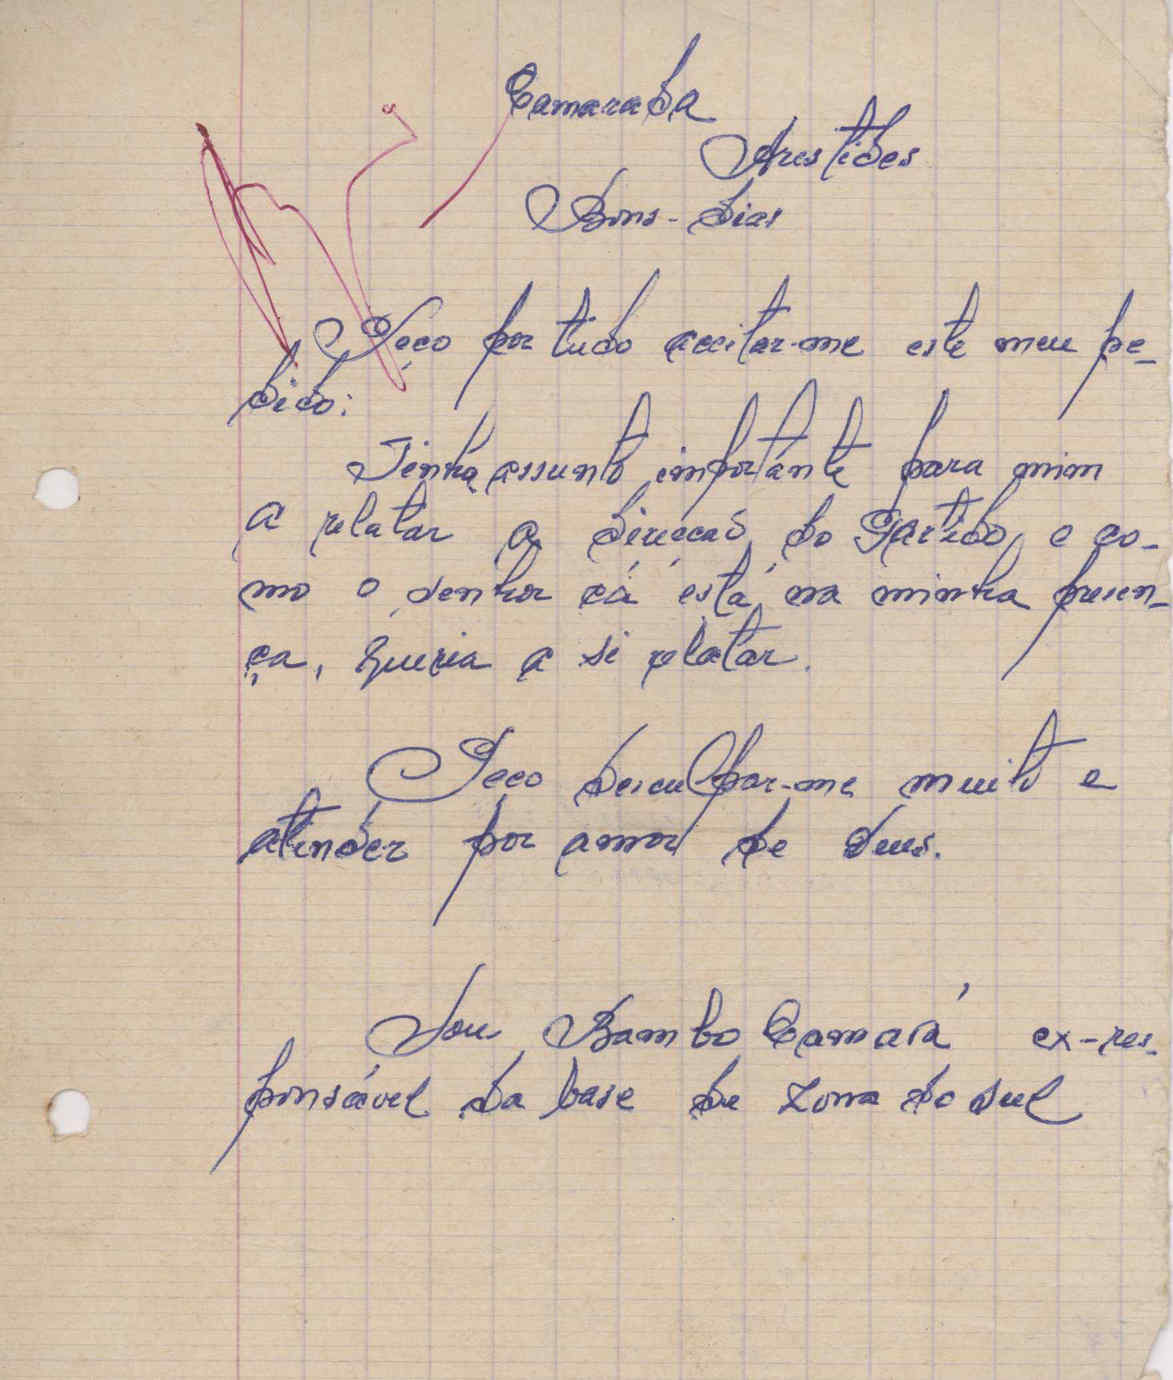 Camarada
Arestides
Bons-dias
Peço por tudo aceitar-me este meu pe-
dido:
Tenho assunto importante para mim
a relatar a direcção do Partido, e co-
mo o senhor cá está na minha presen-
ça, queria a si relatar.
Peço desculpar-me muito e
atender por amor de Deus.
Sou Bambo Camará ex-res-
ponsável da base de zona do sul